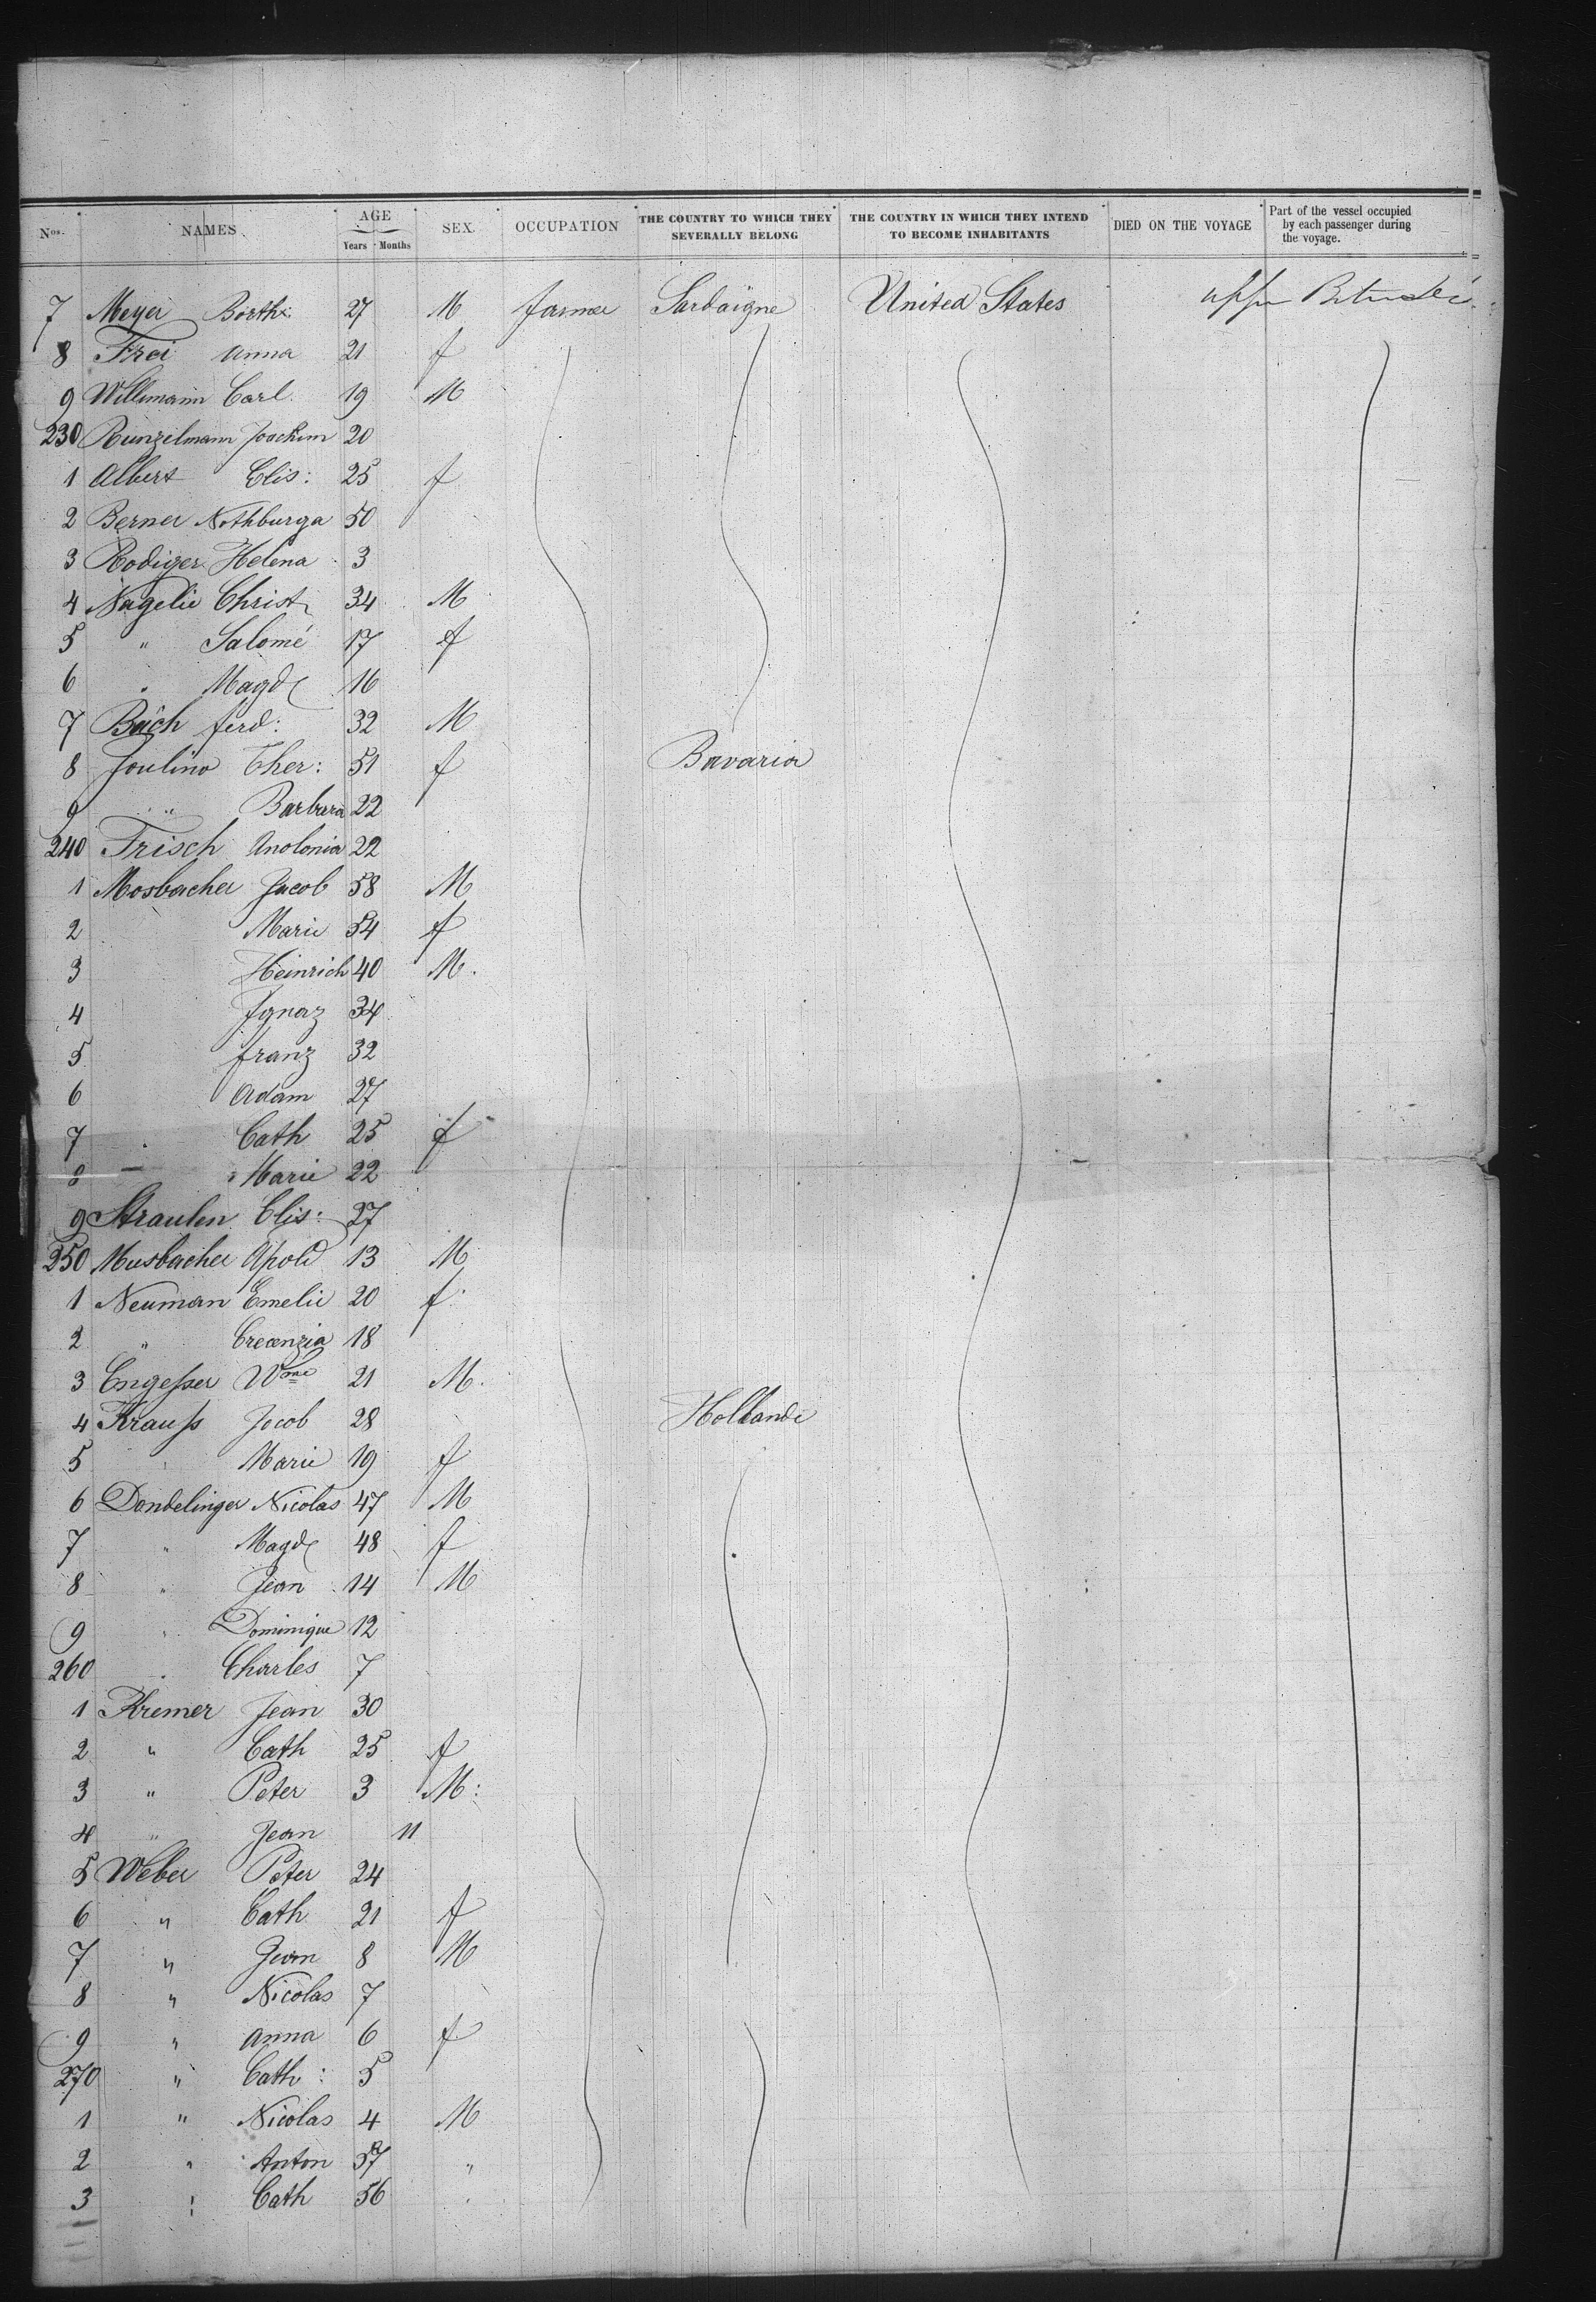 Nos. NAMES AGE Years Months SEX. OCCUPATION THE COUNTRY TO WHICH THEY SEVERALLY BELONG THE COUNTRY IN WHICH THEY INTEND TO BECOME INHABITANTS DIED ON THE VOYAGE Part of the vessel occupied by each passenger during the voyage.
7 Meyer 27 M farmer Sardaigne United States upper
8 Frei Anna 21 f
9 Willmann Carl 19 M
230 Runzelmann Joachim 20
1 Albert Elis: 25 f
2 Berner Nothburga 50
3 Rodiger Helena 3
4 Nagelie Christ 34 M
5 " Salomé 17 f
6 " Magd 16
7 Bach ferd: 32 M
8 Joulino Ther: 51 f Bavaria
9 " Barbara 22
240 Frisch Anolonia 22
1 Mosbacher Jacob 58 M
2 Marie 54 f
3 Heinrich 40 M.
4 Ignaz 34
5 franz 32
6 Adam 27
7 Cath 25 f
8 Marie 22
9 Straulen Elis: 27
250 Musbacher Apold 13 M
1 Neuman Emelie 20 f
2 " Crecenzia 18
3 Engesser Wme 21 M.
4 Krauss Jacob 28 Hollande
5 Marie 19 f
6 Dondelinger Nicolas 47 M
7 " Magd 48 f
8 " Jean 14 M
9 " Dominique 12
260 " Charles 7
1 Kremer Jean 30
2 " Cath 25 f
3 " Peter 3 M:
4 " Jean 11
5 Weber Peter 24
6 " Cath 21 f
7 " Jean 8 M
8 " Nicolas 7
9 " Anna 6 f
270 " Cath: 5
1 " Nicolas 4 M
2 " Anton 57 "
3 " Cath 56